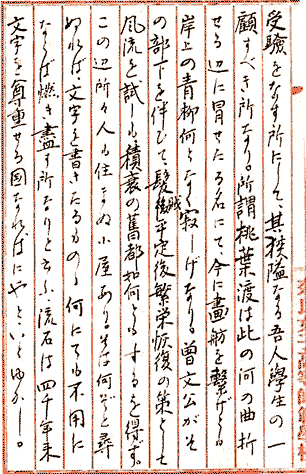 受験をなす所にして、其狭隘なる吾人學生の一
顧すべき所なり。所謂桃葉渡は此の河の曲折
せる辺に冒せたる名にて今に畫舫を繋げども
岸上の青柳何となく寂しげなり。曽文公がそ
の部下を伴ひて髪賊平定後繁栄恢復の策として
風流を試しも積衰の舊都如何ともするを得ず。
この辺所々人も住まぬ小屋あり。そは何ぞと尋
ぬれば文字を書きたるものは何にても不用に
ならば燃き盡す所なりと云ふ、流石は四千年来
文字を尊重せる国なればにや、といとゆかし。